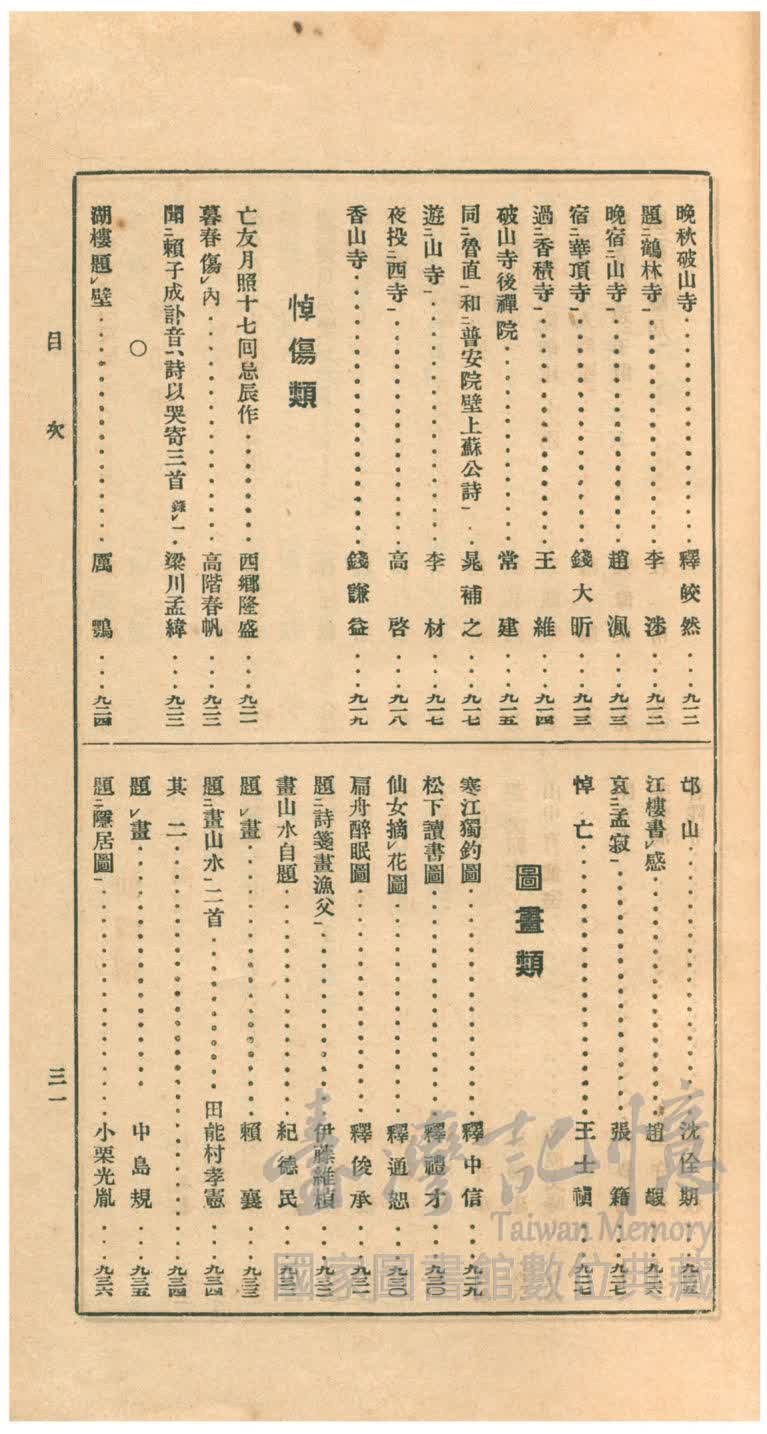 晚秋破山寺……釋皎然……九一二
題二鶴林寺一……李 涉……九一二
晚宿二山寺一……趙 渢……九一三
宿二華頂寺一……錢大昕……九一三
過二香積寺一……王 維……九一四
破山寺後禪院……常 建……九一五
同二魯直一和二普安院壁上蘇公詩一……晁補之……九一七
遊二山寺一……李 材……九一七
夜投二西寺一……高 啓……九一八
香山寺……錢謙益……九一九
悼傷類
亡友月照十七回忌辰作……西鄉隆盛……九二一
暮春傷レ內……高階春帆……九二二
聞二賴子成訃音一、詩以哭寄三首 錄レ一……梁川孟緯……九二三
○
湖樓題レ壁……厲 鶚……九二四
邙山……沈佺期……九二五
江樓書レ感……趙 嘏……九二六
哀二孟寂一……張 籍……九二七
悼亡……王士禛……九二七
圖畫類
寒江獨釣圖……釋中信……九二九
松下讀書圖……釋禮才……九三〇
仙女摘レ花圖……釋通恕……九三〇
扁舟醉眠圖……釋俊承……九三一
題二詩箋畫漁父一……伊藤維楨……九三二
畫山水自題……紀德民……九三二
題レ畫……賴 襄……九三三
題二畫山水一二首……田能村孝憲……九三四
其二……九三四
題レ畫……中島規……九三五
題二隱居圖一……小栗光胤……九三六
目次
三一
臺灣記憶
Taiwan Memory
國家圖書館數位典藏